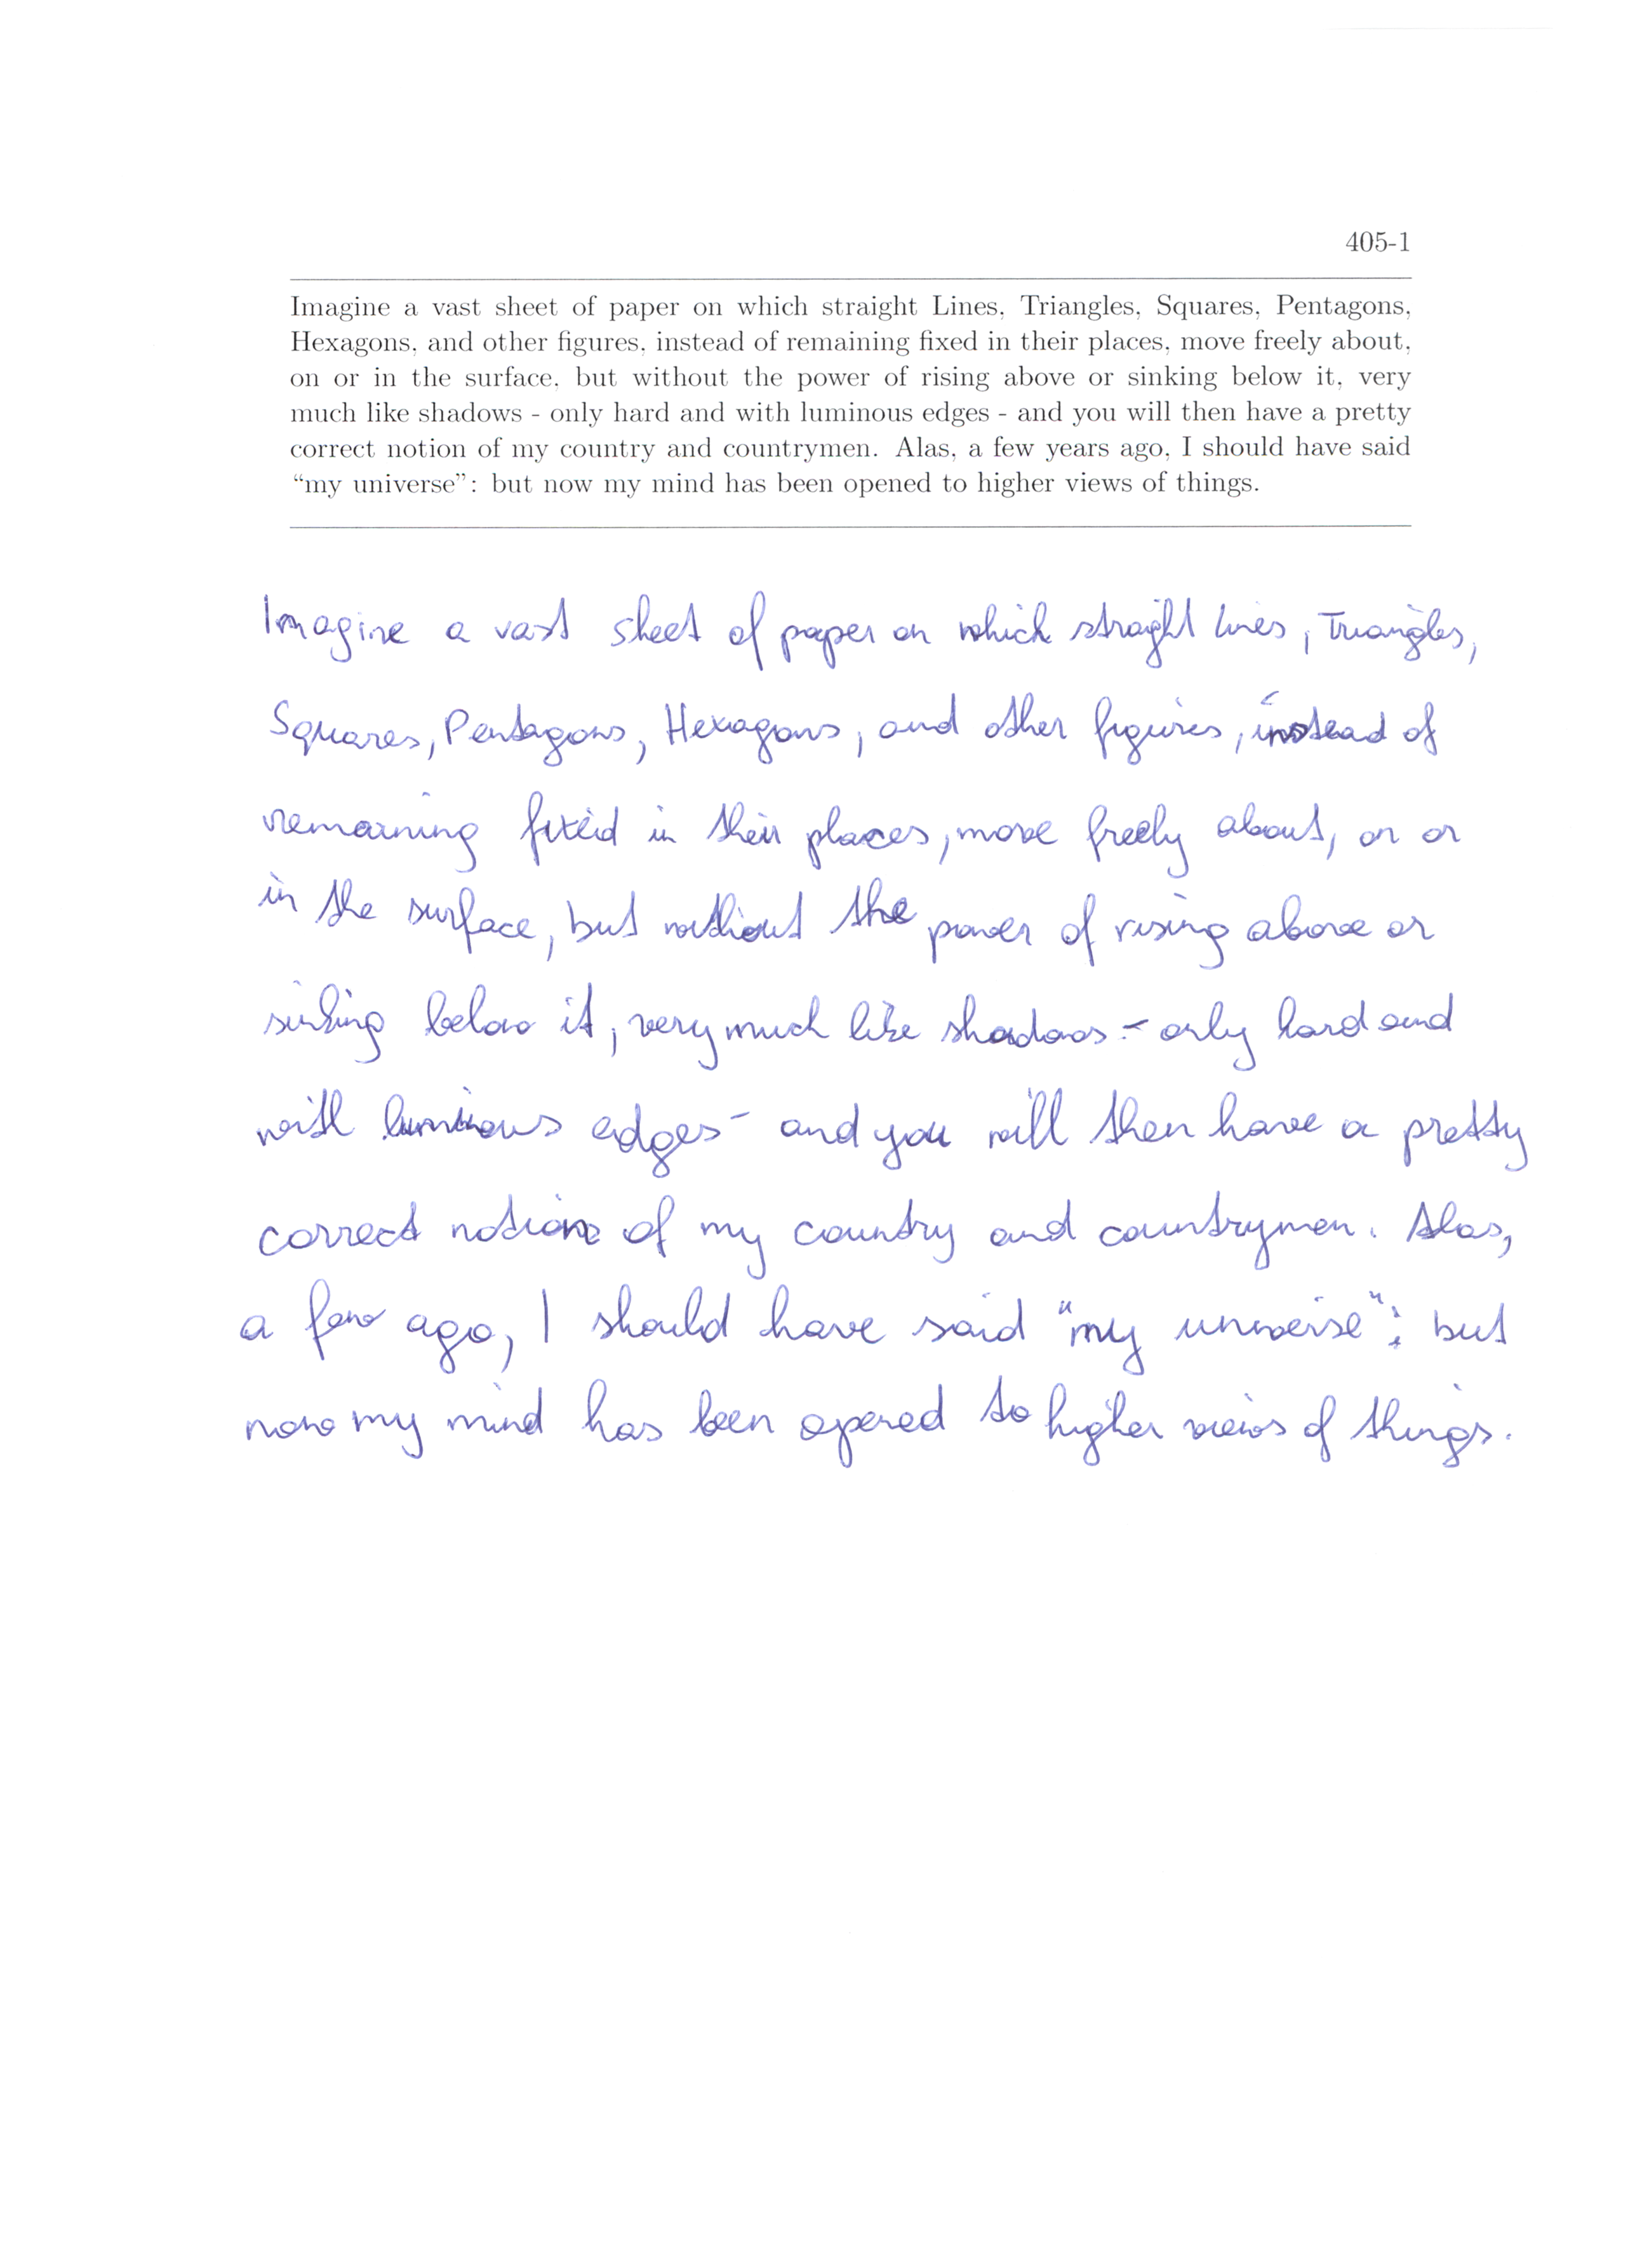 405-1
Imagine a vast sheet of paper on which straight Lines, Triangles, Squares, Pentagons,
Hexagons, and other figures, instead of remaining fixed in their places, move freely about,
on or in the surface, but without the power of rising above or sinking below it, very
much like shadows - only hard and with luminous edges - and you will then have a pretty
correct notion of my country and countrymen. Alas, a few years ago, I should have said
“my universe”: but now my mind has been opened to higher views of things.
Imagine a vast sheet of paper on which straight lines, Triangles,
Squares, Pentagons, Hexagons, and other figures, instead of
remaining fixed in their places, move freely about, on or
in the surface, but without the power of rising above or
sinking below it, very much like shadows - only hard and
with luminous edges - and you will then have a pretty
correct notion of my country and countrymen. Alas,
a few ago, I should have said "my universe": but
now my mind has been opened to higher views of things.